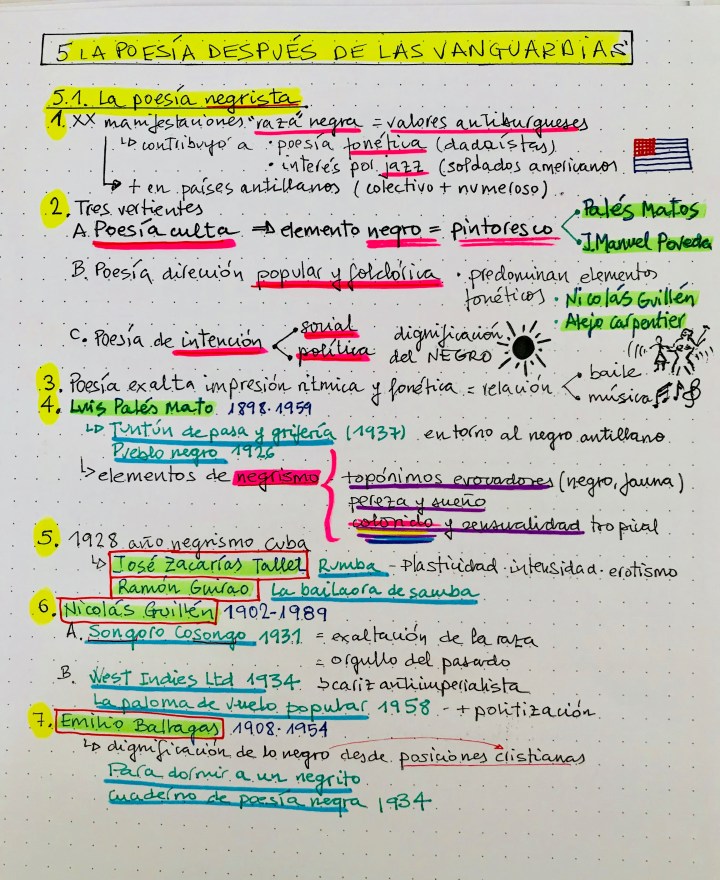 5 LA POESÍA DESPUÉS DE LAS VANGUARDIAS
5.1. La poesía negrista
1. XX manifestaciones "raza" negra = valores antiburgueses
↳ contribuyó a · poesía fonética (dadaístas)
· interés por jazz (soldados americanos
↳ + en países antillanos (colectivo + numeroso).
2. Tres vertientes
A. Poesía culta ⇒ elemento negro = pintoresco
· Palés Matos
· J. Manuel Poveda
B. Poesía direción popular y folclórica · predominan elementos
fonéticos · Nicolás Guillén
· Alejo Carpentier
C. Poesía de intención · social
· política
dignificación
del NEGRO
3. Poesía exalta impresión rítmica y fonética = relación · baile
· música
4. Luis Palés Mato 1898-1959
↳ Tuntún de pasa y grifería (1937) en torno al negro antillano
Pueblo negro 1926
↳ elementos de negrismo
topónimos evocadores (negro, fauna)
pereza y sueño
colorido y sensualidad tropical
5. 1928 año negrismo Cuba
↳ José Zacarías Tallet Rumba - Plasticidad · intensidad · erotismo
Ramón Guirao La bailaora de samba
6. Nicolás Guillén 1902-1989
A. Songoro Cosongo 1931 = exaltación de la raza
= orgullo del pasado
B. West Indies Ltd 1934 > cariz antiimperialista
La paloma de vuelo popular 1958 - + politización.
7. Emilio Ballagas 1908-1954
↳ dignificación de lo negro desde posiciones cristianas
Para dormir a un negrito
Cuaderno de poesía negra 1934